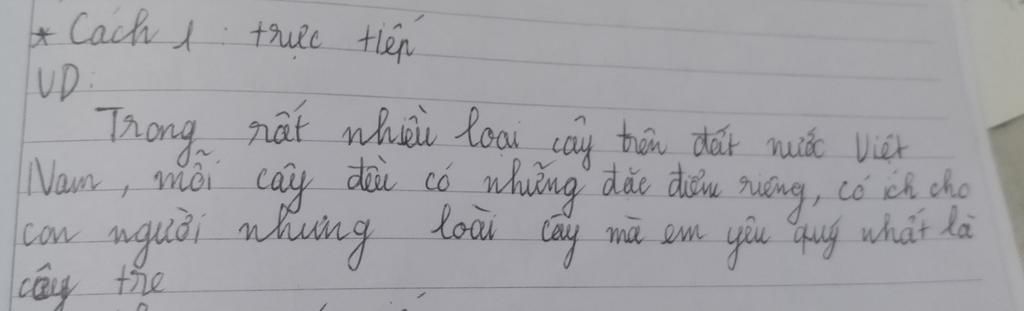 * Cách 1 : trực tiếp
VD:
Trong rất nhiều loại cây trên đất nước Việt
Nam, mỗi cây đều có những đặc điểm riêng, có ích cho
con người nhưng loài cây mà em yêu quý nhất là
cây tre